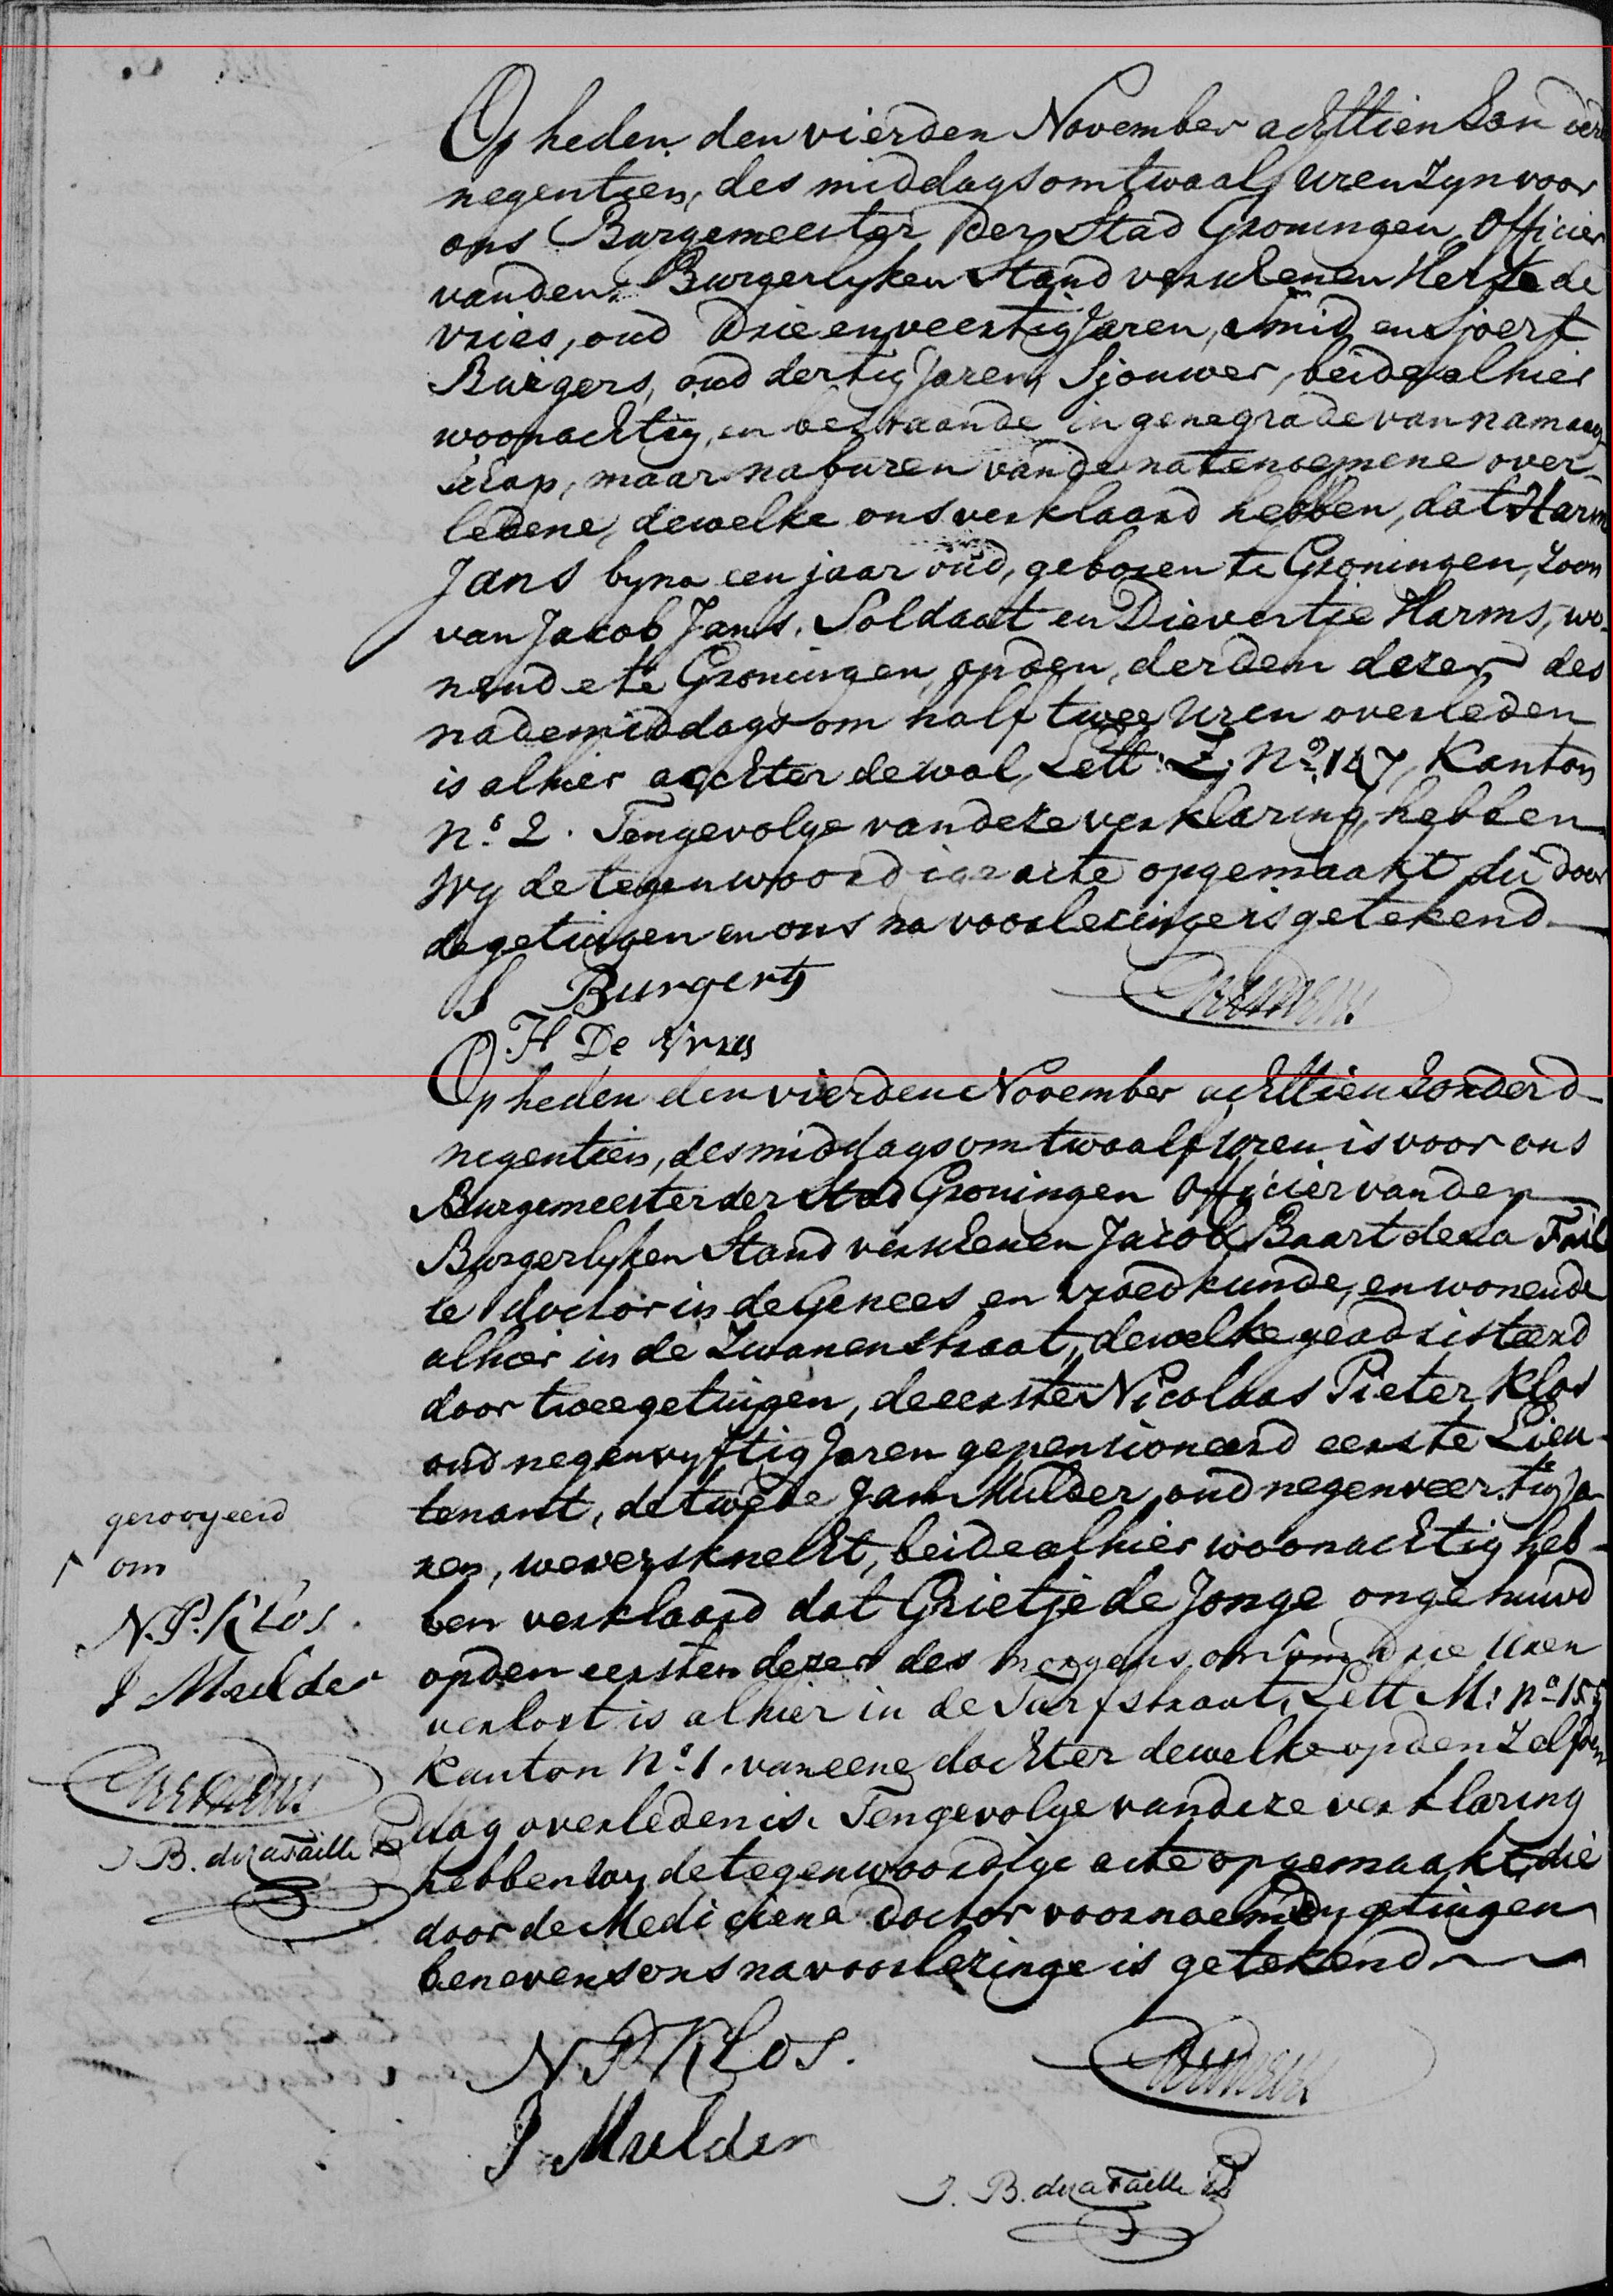 Op heden den vierden November achttien hon derd
negentien, des middags om twaalf uren zyn voor
ons Burgemeester der Stad Groningen Officier
van den Burgerlyken Stand verschenen Herke de
Vries, oud drieenveertig Jaren, Smid en Sjoert
Burgers, oud dertig Jaren, Sjouwer, beide alhier
woonachtig, en bestaande in gene grade van namaag-
schap, maar naburen van de natenoemene over-
ledene, dewelke ons verklaard hebben, dat Harm
Jans byna een jaar oud, geboren te Groningen, Zoon
van Jacob Jans, Soldaat en Dievertje Harms, wo-
nende te Groningen, op den derden dezer des
nademiddags om half twee uren overleden
is alhier achter de wal, Lett: Z; No. 147, Kanton
No. 2. Tengevolge van deze verklaring, hebben
Wy de tegenwoordige acte opgemaakt die door
de getuigen en ons na voorlezinge is getekend
S Burgerts
H De Vries
Op heden den vierden November achttien honderd
negentien, des middags om twaalf uren is voor ons
Burgemeester der Stad Groningen Officier van den
Burgerlyken Stand verschenen Jacob Baart de La Fail
le doctor in de Genees en vroedkunde, en wonende
alhier in de Zwanenstraat, dewelke geadsisteerd
door twee getuigen, de eerste Nicolaas Pieter Klos
oud negenvyftig Jaren gepensioneerd eerste Lieu-
tenant, de twede Jan Mulder, oud negenveertig ja-
ren, weversknecht, beide alhier woonachtig heb-
ben verklaard dat Grietje de Jonge ongehuwd
op den eersten dezer des morgens om om drie uren
verlost is alhier in de Turfstraat, Lett M: No. 155
Kanton No. 1. van eene dochter dewelke op den Zelfden
dag overleden is. Tengevolge van deze verklaring
hebben wy de tegenwoordige acte opgemaakt, die
door de Medicinae doctor voornoemd getuigen
benevens ons na voorlezinge is getekend
gerooyeerd
om
N. P. Klos.
J Mulder
J B. de la Faille
N. P. Klos.
J Mulder
J. B. de la Faille